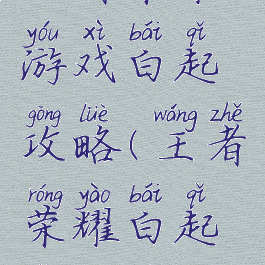 yóu xì bái qǐ
游戏白起
gōng lüè wáng zhě
攻略(王者
róng yào bái qǐ
荣耀白起